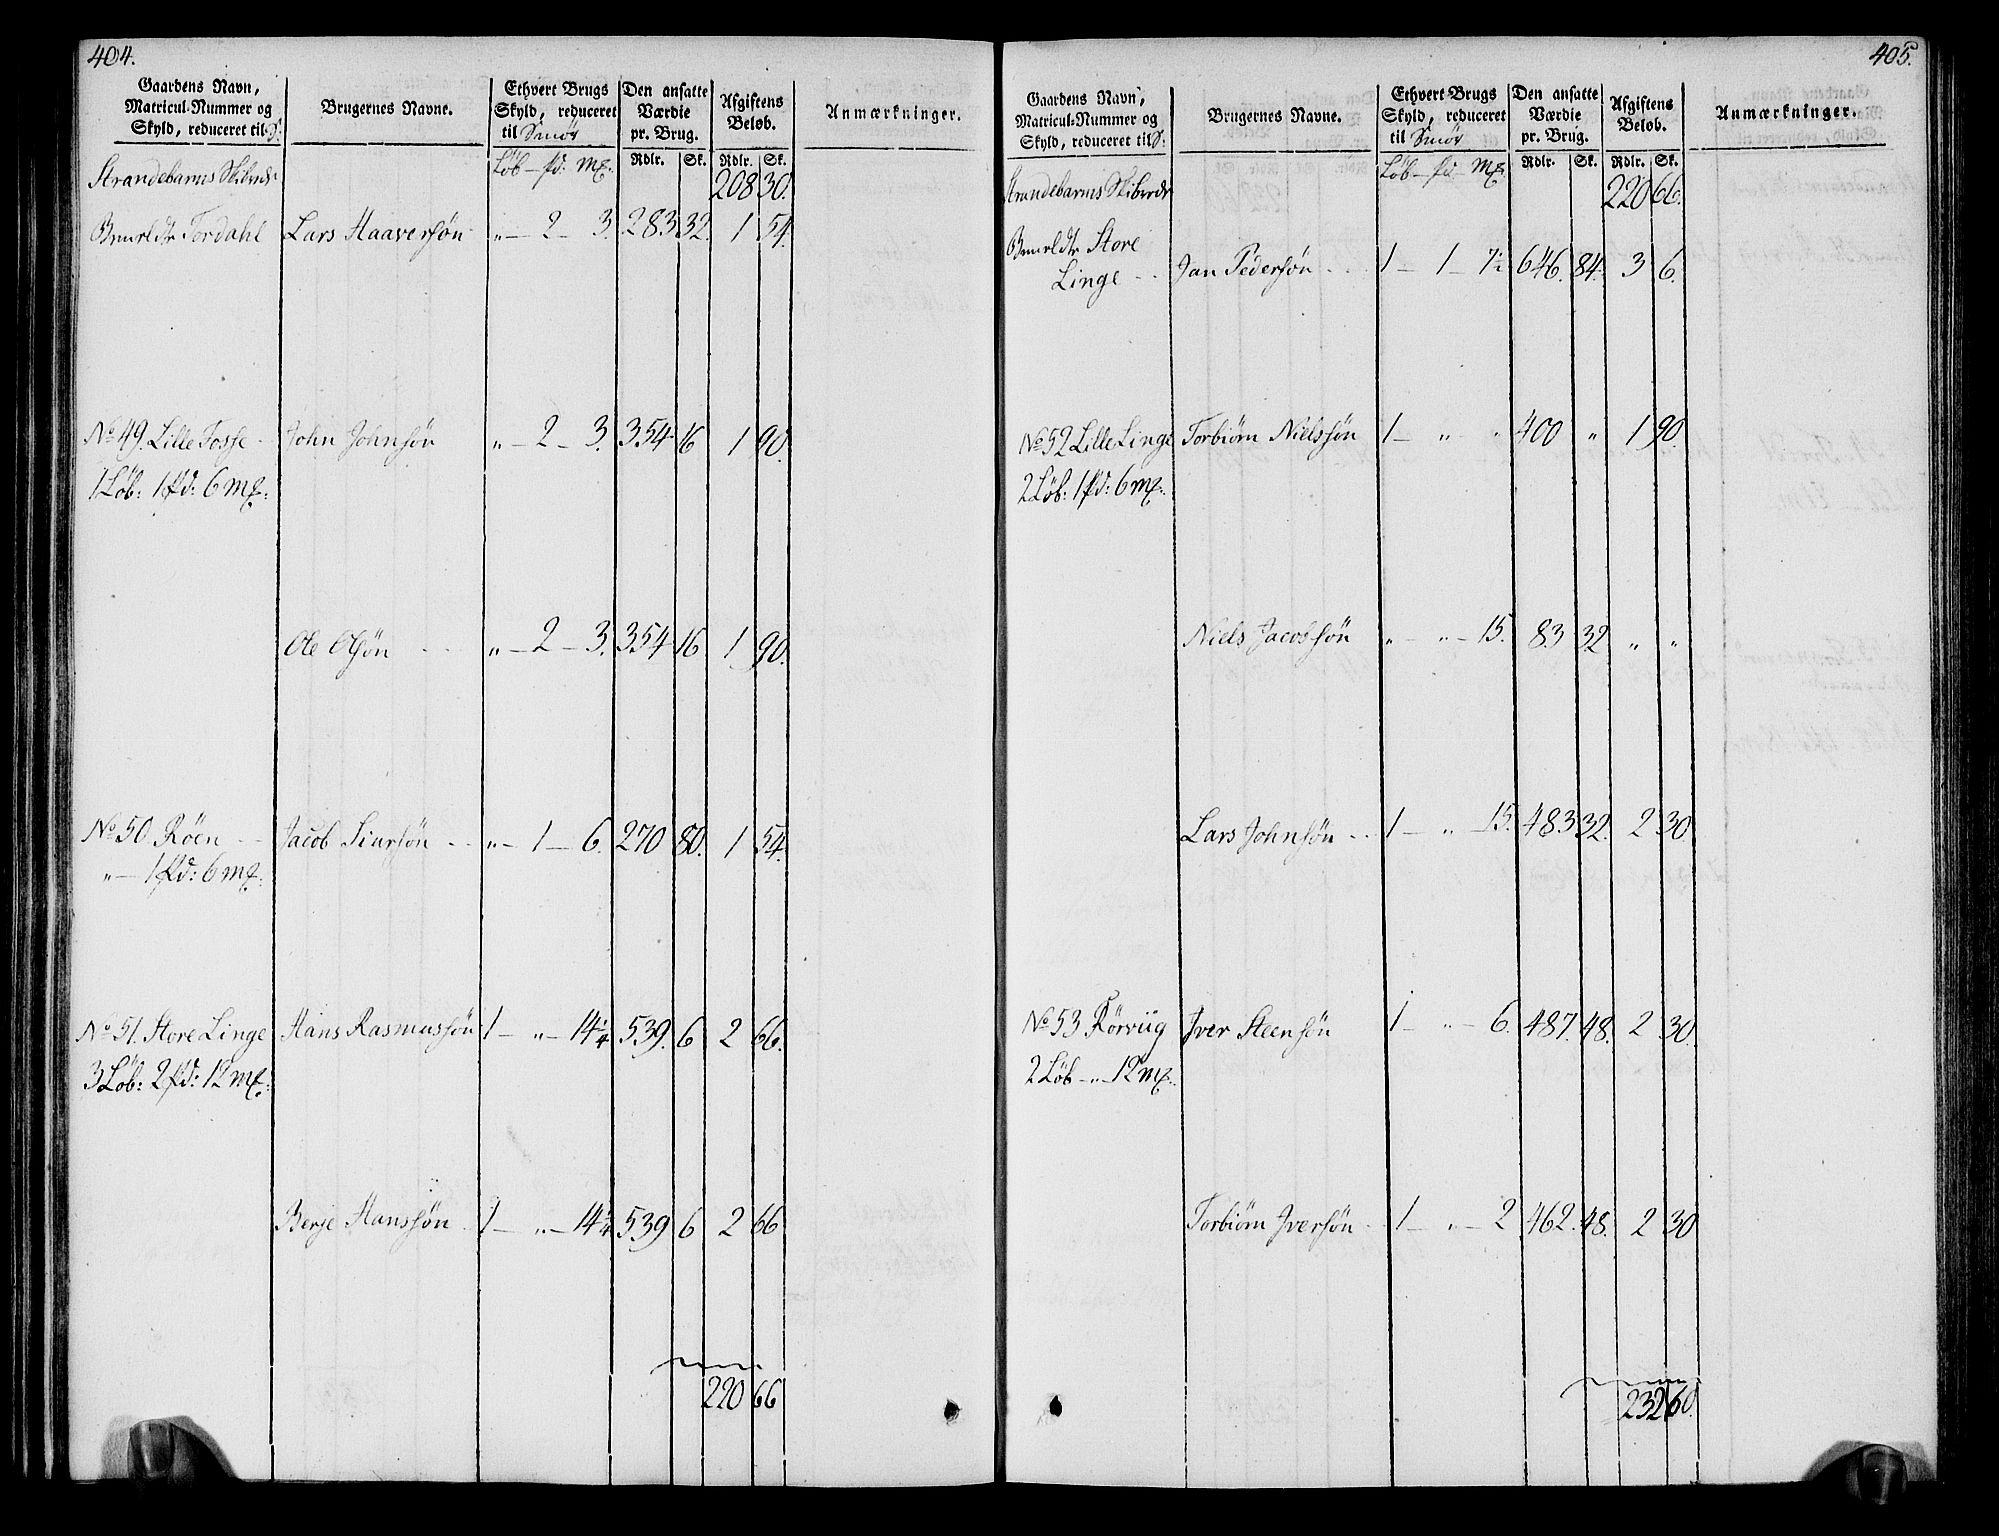 404.
Gaardens Navn, Matricul-Nummer og Skyld, reduceret til S:
Brugernes Navne.
Ethvert Brugs Skyld, reduceret til Smör
Den ansatte Værdie pr. Brug.
Afgiftens Beløb.
Anmærkninger.
Løb – pd: Mk:
Rdlr. Sk. Rdlr. Sk.
Strandebarms Skibrede 208 30.
Lars Haaversøn „ – 2 – 3. 283 32. 1 54.
No 49. Lille Fosse John Johnsøn „ – 2 – 3. 354 16 1 90.
1 Løb: 1 pd: 6 mk:
Ole Olsøn „ – 2 – 3. 354 16 1 90.
No 50. Røen Jacob Siursøn „ – 1 – 6. 270 80. 1 54.
„ – 1 pd: 6 mk:
No 51. Store Linge Hans Rasmussøn 1 – „ – 14¼ 539. 6 2 66.
3 Løb: 2 pd: 12 mk:
Berje Hanssøn 1 – „ – 14¼ 539 6 2 66
220 66
405.
Gaardens Navn, Matricul-Nummer og Skyld, reduceret til S:
Brugernes Navne.
Ethvert Brugs Skyld, reduceret til Smör
Den ansatte Værdie pr. Brug.
Afgiftens Beløb.
Anmærkninger.
Løb – pd – Mk
Rdlr. Sk. Rdlr. Sk.
Strandebarms Skibrede 220 66.
Store
Linge Jan Pedersøn 1 – 1 – 7½ 646. 84. 3 6.
No 52 Lille Linge Torbiørn Nielssøn 1 – „ „ 400 „ 1 90.
2 Løb: 1 pd: 6 mk:
Niels Jacobssøn „ – „ – 15. 83 32 „ „
Lars Johnsøn 1 – „ – 15. 483 32. 2 30.
No 53 Rørviig Iver Steensøn 1 – „ – 6. 487. 48. 2 30.
2 Løb – „ – 12 mk:
Torbiørn Iversøn 1 – „ – 2 462. 48. 2 30
232 60.